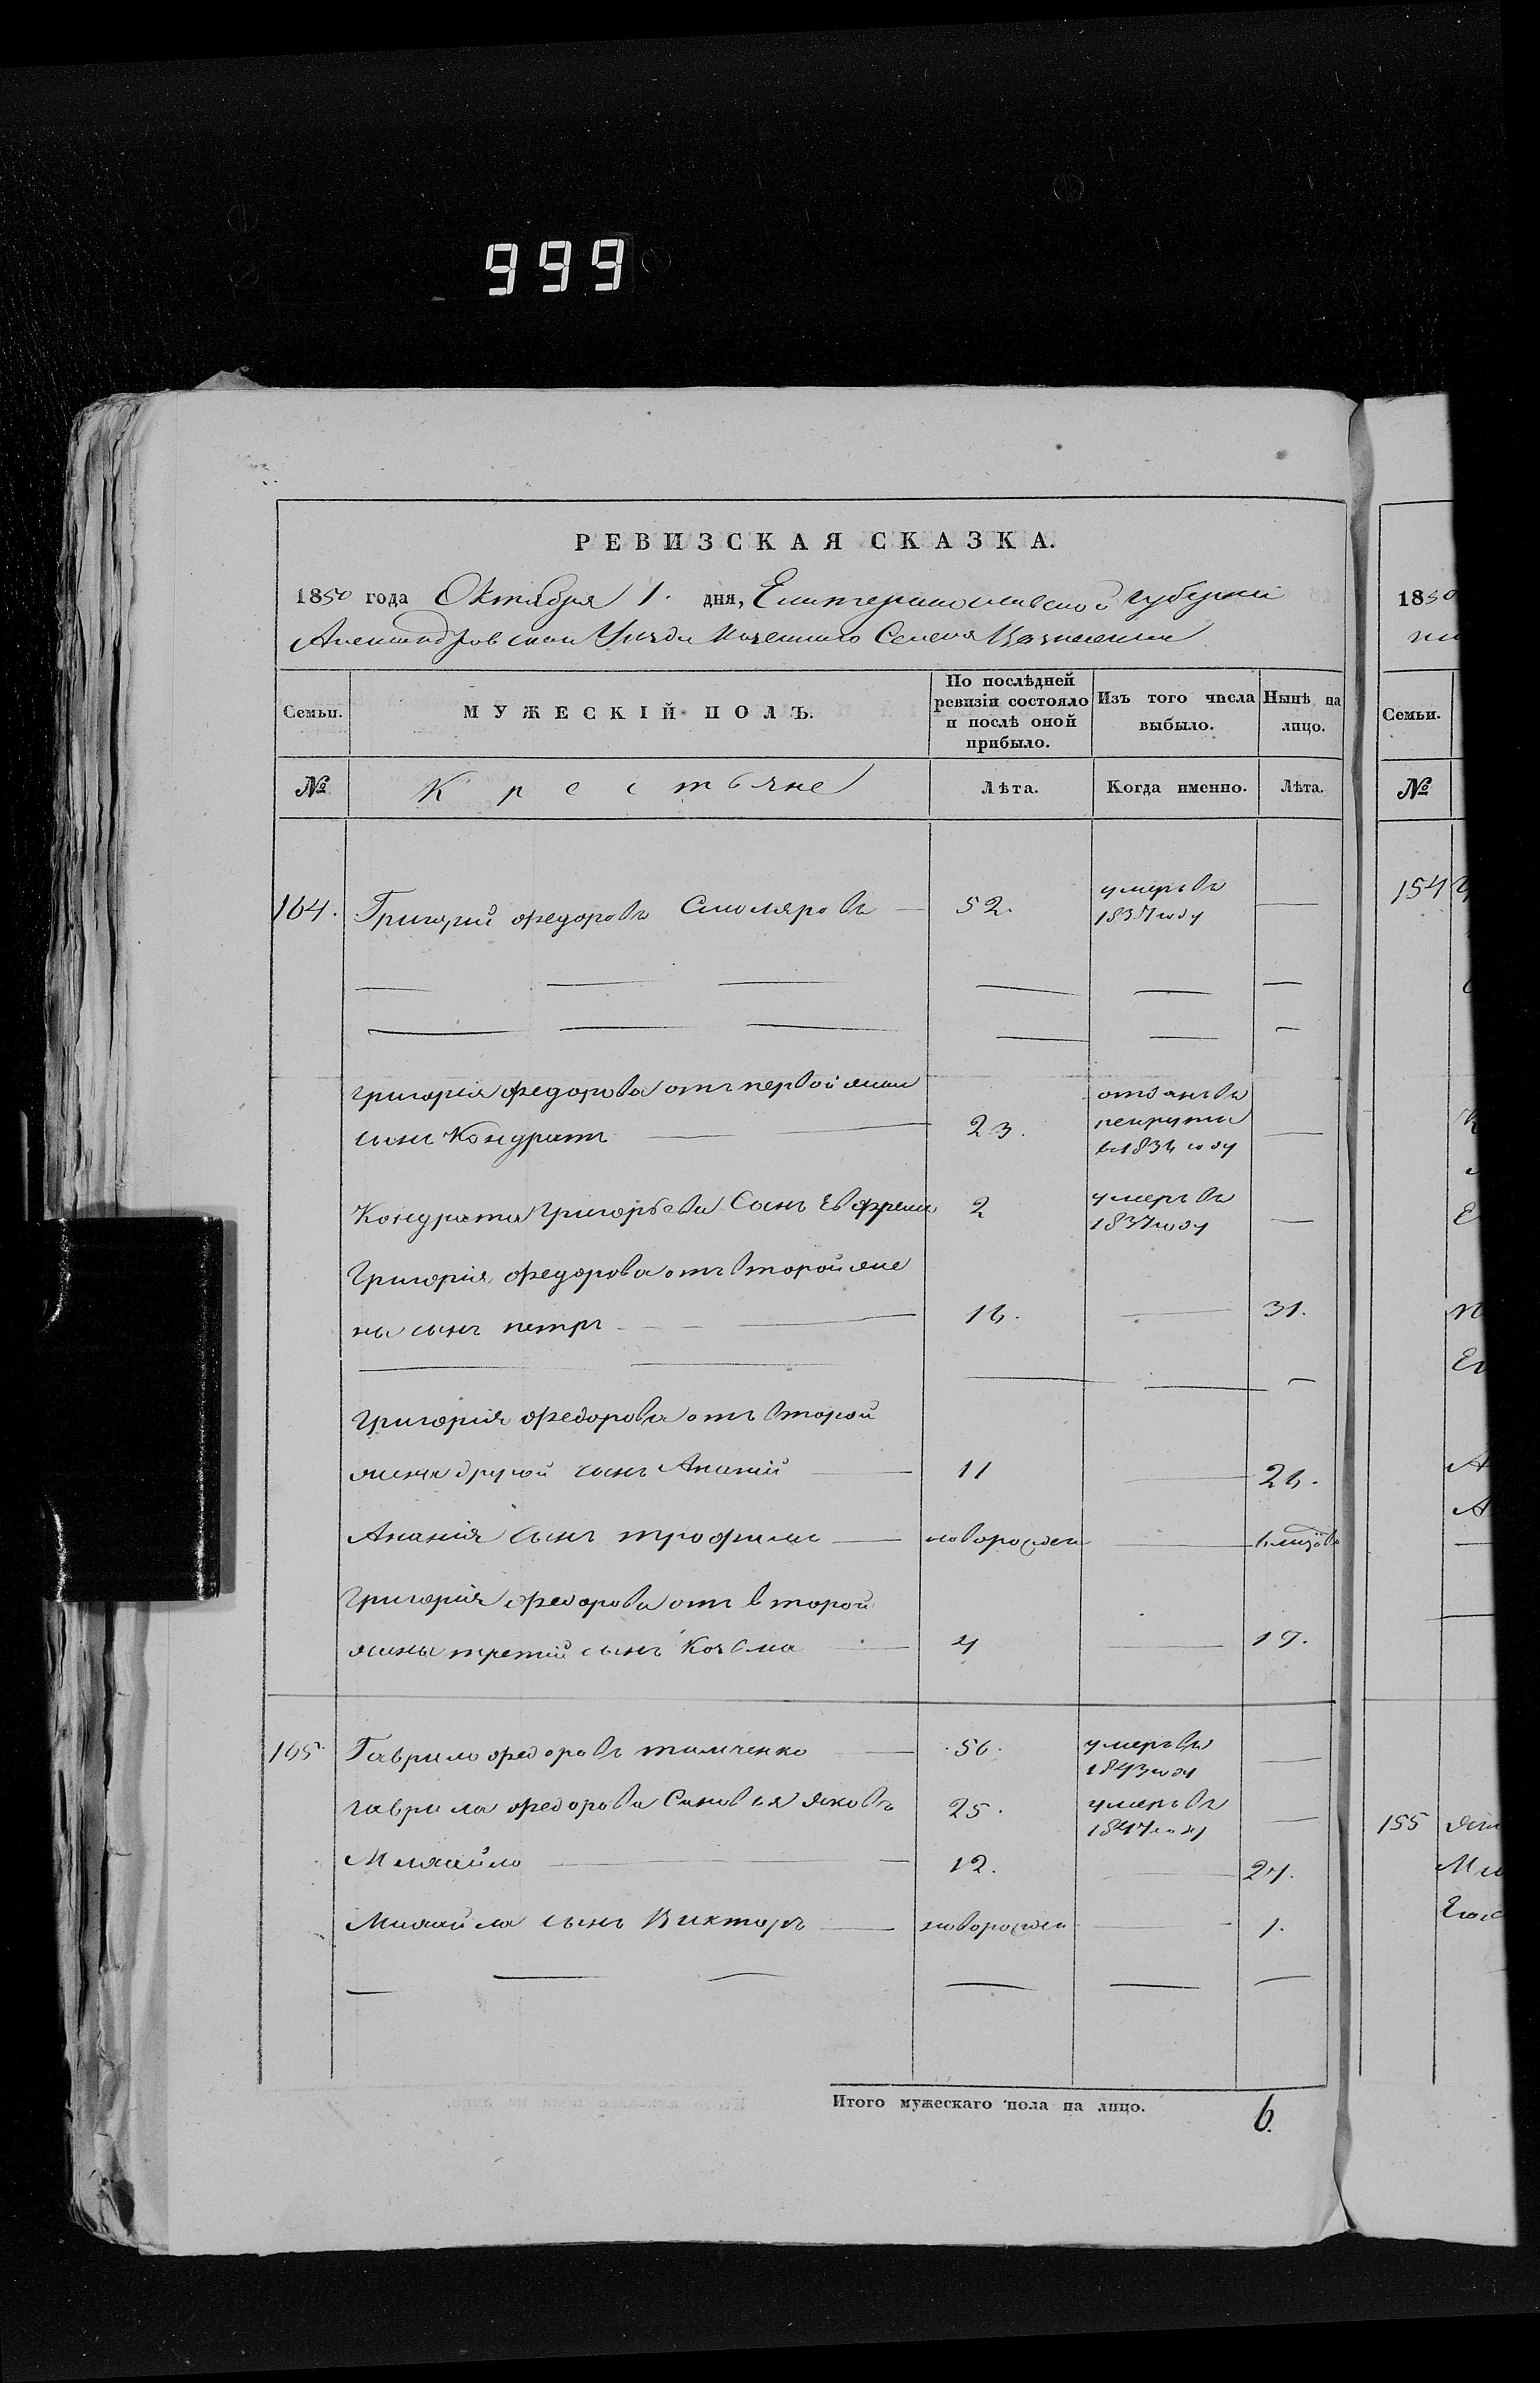 999
РЕВИЗСКАЯ СКАЗКА.
1850 года Октября 1. дня, Екатеринославской Губерніи
Александровскаго Уезда Казеннаго Селенія Вознесенки
Семьи. МУЖЕСКІЙ ПОЛЪ. По послѣдней ревизіи состояло и послѣ оной прибыло. Изъ того числа выбыло. Нынѣ на лицо.
№ Крестьяне Лѣта. Когда именно. Лѣта.
164. Григорій федоровъ Столяровъ 52. умеръ въ 1837 году
Григорія федорова отъ первой жены
сынъ Кондратъ 23. отданъ въ рекруты в 1836 году
Кондрата григорьева Сынъ Евфремъ 2 умеръ въ 1837 году
Григорія федорова отъ второй же
ны сынъ петръ 16. 31.
Григорія федорова отъ второй
жены другой сынъ Ананій 11 26.
Ананія Сынъ трофимъ новорожден
Григорія федорова отъ второй
жены третій сынъ Козма 4 19.
165. Гаврило федоровъ тимченко 56. умеръ въ 1843 году
гаврила федорова Сыновья яковъ 25. умеръ въ 1847 году
Михайло 12. 27.
Михайла сынъ Викторъ новорожден 1.
Итого мужескаго пола на лицо. 6.
1850
Семьи.
№
154
155